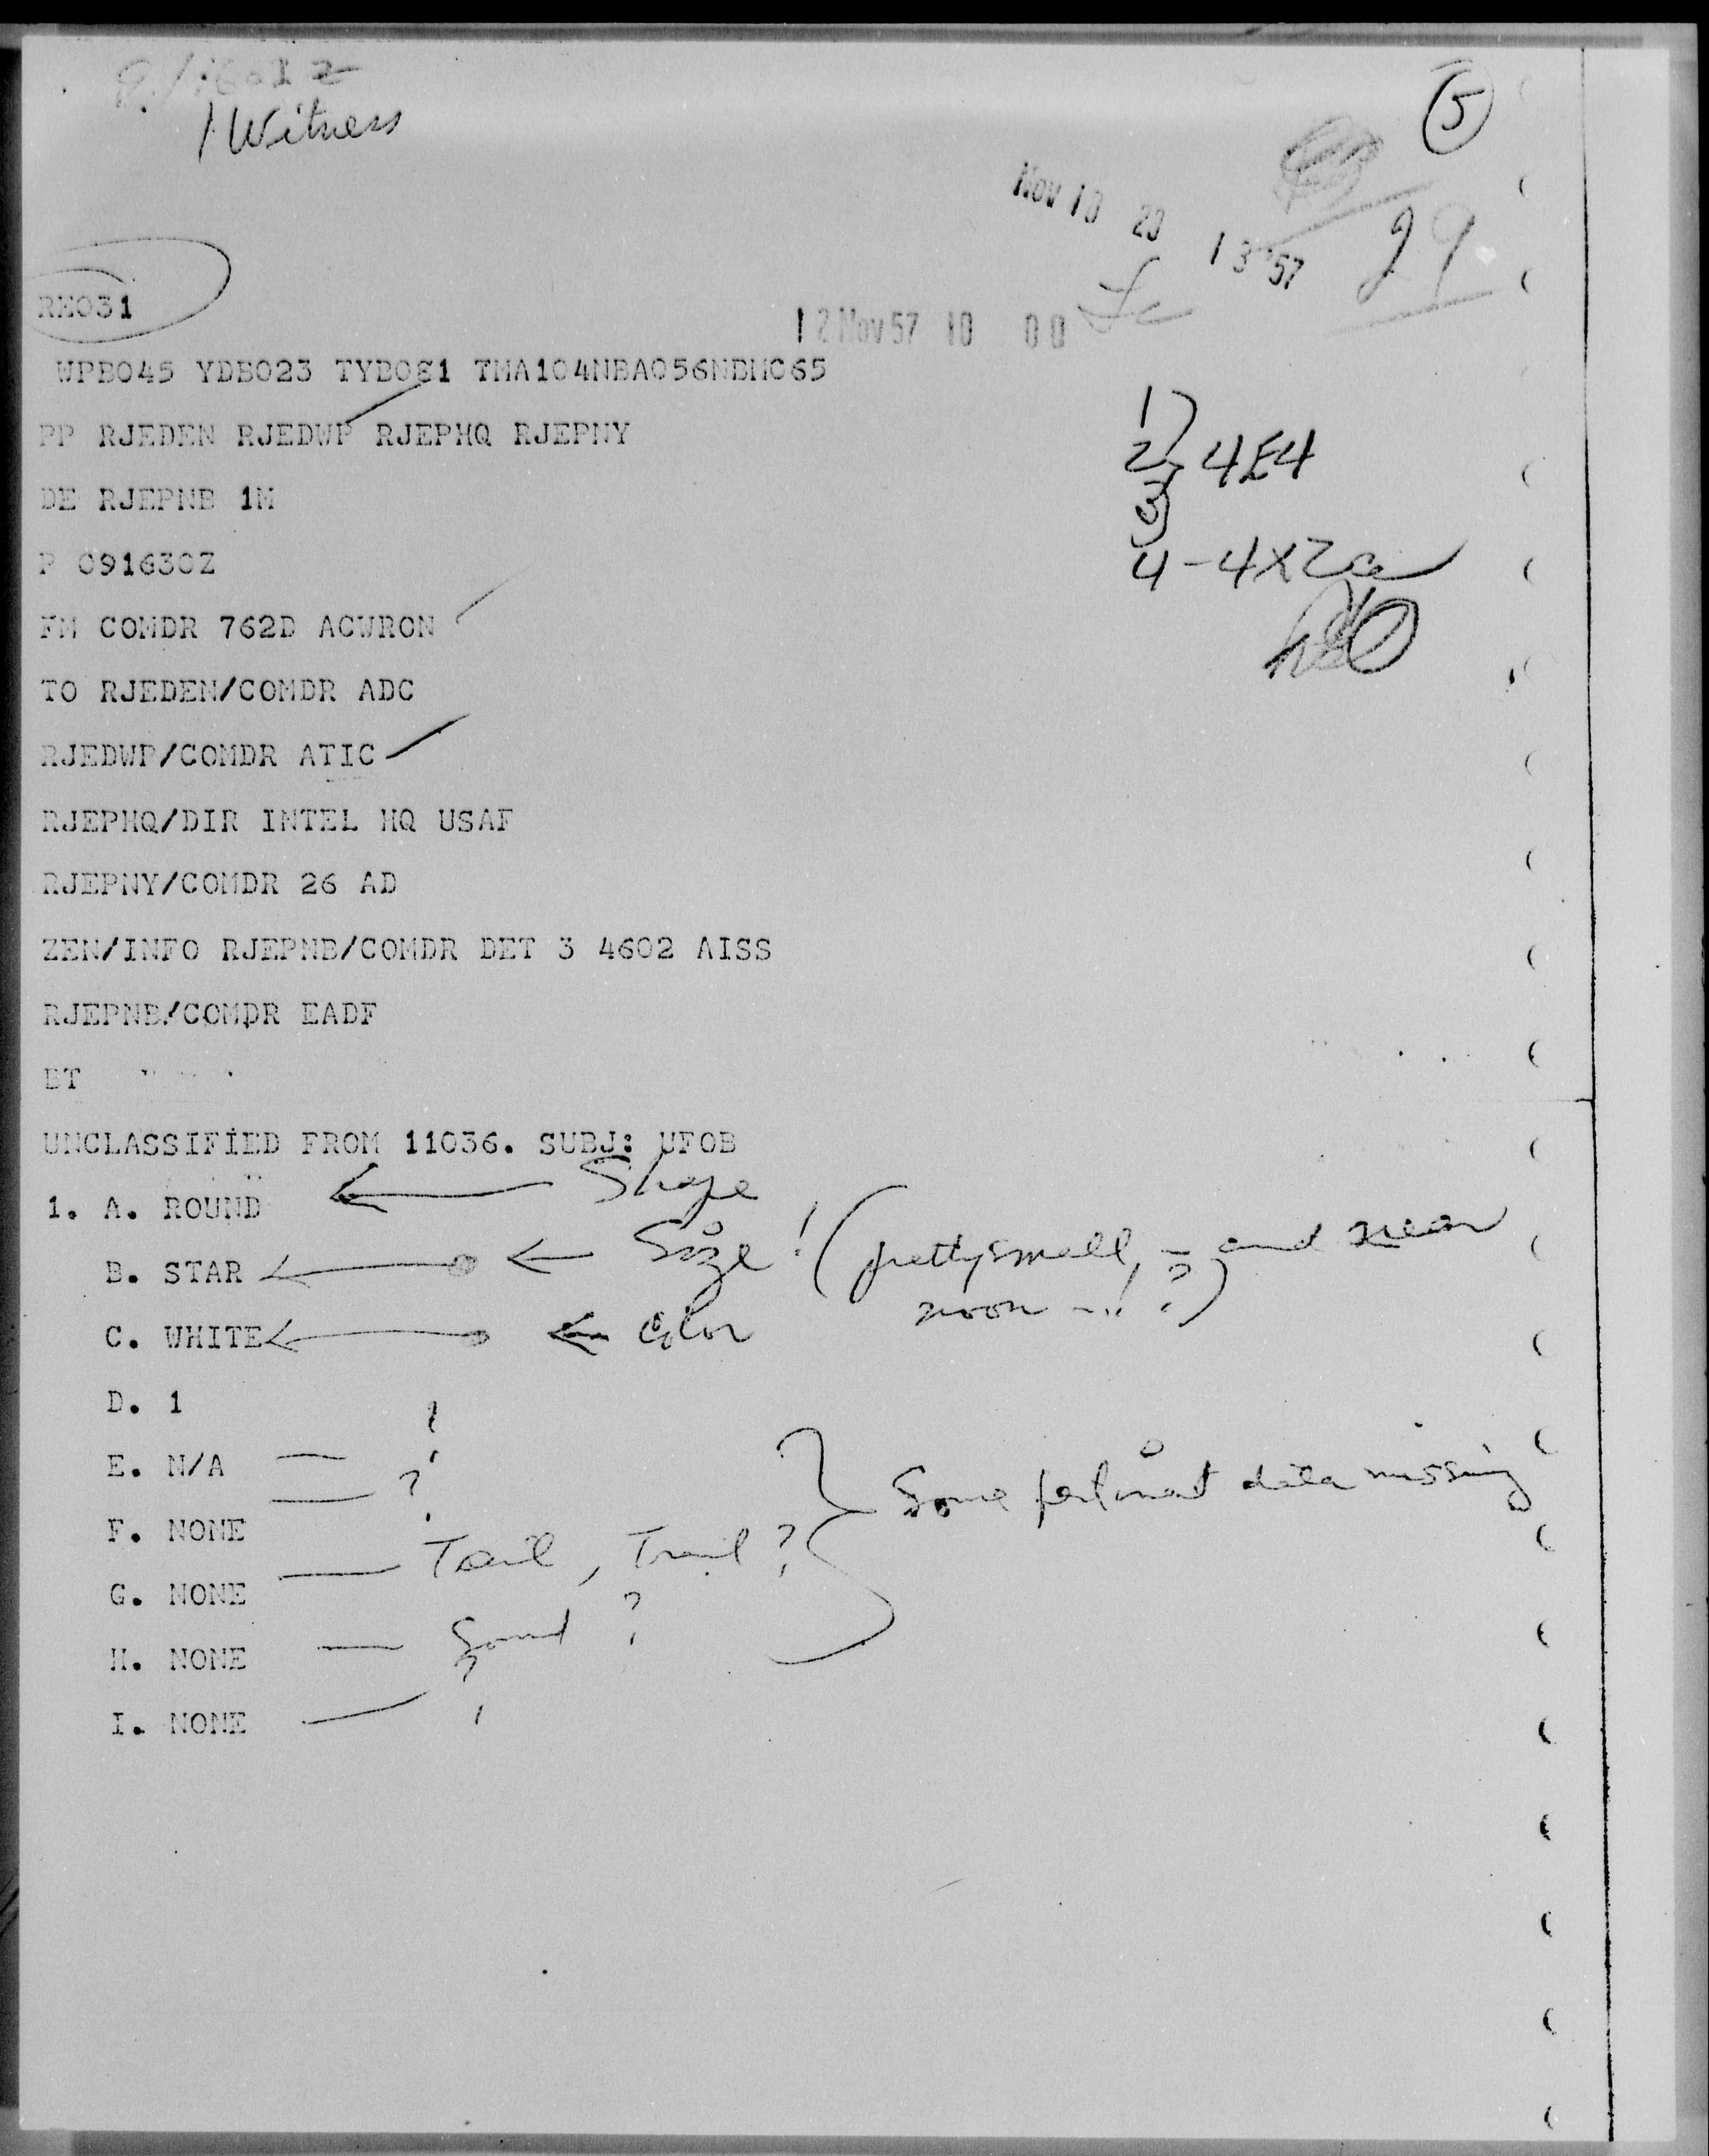 1 Witness
5
Nov 13 57
29
RE031
12 Nov 57 10 00
WPB045 YDB023 TYB081 TMA104NBA056NBHC65
PP RJEDEN RJEDWP RJEPHQ RJEPNY
1)
2) 4E4
3)
DE RJEPNB 1M
P 091630Z
4 - 4X2a
FM COMDR 762D ACWRON
TO RJEDEN/COMDR ADC
RJEDWP/COMDR ATIC
RJEPHQ/DIR INTEL HQ USAF
RJEPNY/COMDR 26 AD
ZEN/INFO RJEPNB/COMDR DET 3 4602 AISS
RJEPNB/COMDR EADF
BT
UNCLASSIFIED FROM 11036. SUBJ: UFOB
1. A. ROUND ← Shape
B. STAR ← Size! (pretty small, - and near
noon -! ?)
C. WHITE ← Color
D. 1
E. N/A — ?
— ?
F. NONE
— Tail, Trail?
Some pertinent data missing
G. NONE
H. NONE — Sound ?
I. NONE — ?